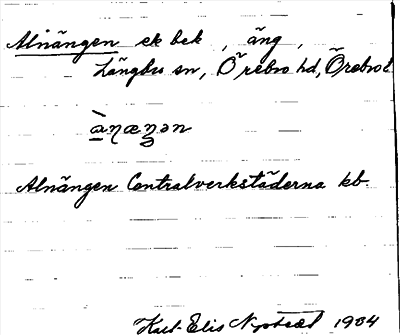 Alnängen ek bek, äng,
Längbro sn, Örebro hd, Örebro l
Alnängen Centralverkstäderna kb.
Karl-Elis 1934